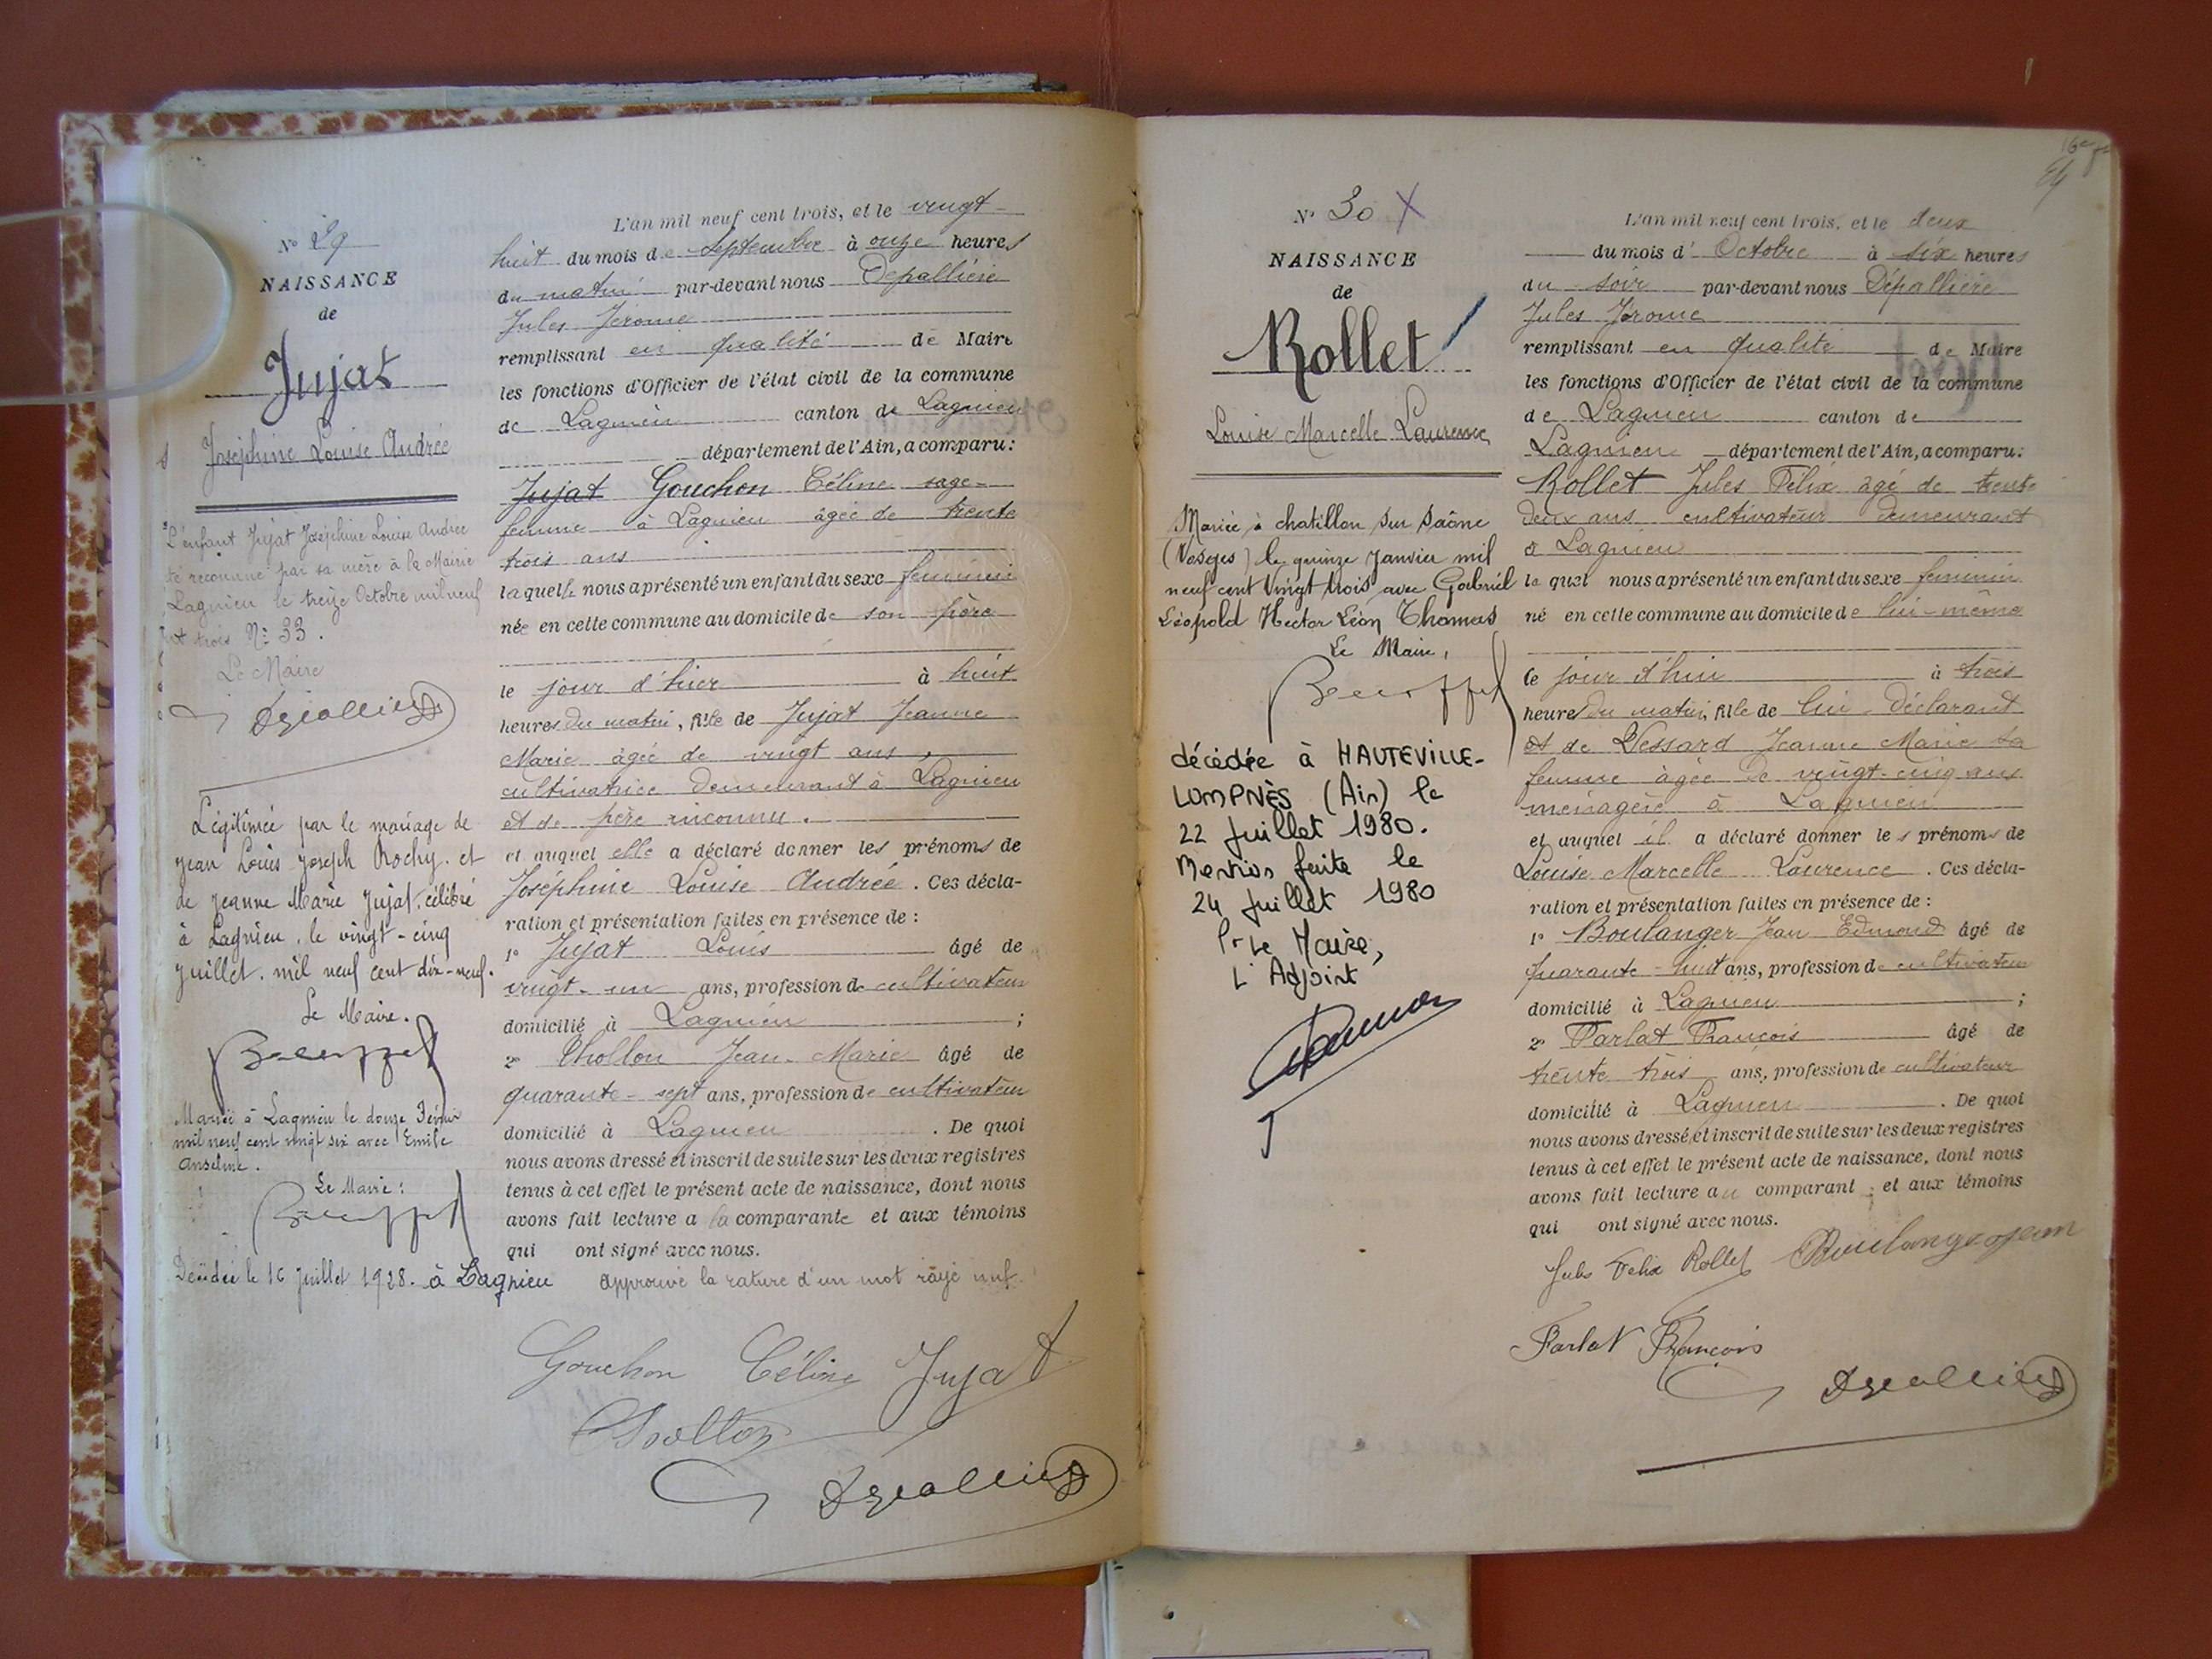 N° 29
NAISSANCE
de
Jujat
Joséphine Louise Andrée
L'enfant Jujat Joséphine Louise Andrée
été reconnue par sa mère à la Mairie
Lagnieu le treize Octobre mil neuf
cent trois N° 33.
Le Maire
Légitimée par le mariage de
Jean Louis Joseph Rochy et
de Jeanne Marie Jujat, célébré
à Lagnieu, le vingt-cinq
juillet mil neuf cent dix-neuf.
Le Maire.
Mariée à Lagnieu le douze Février
mil neuf cent vingt six avec Emile
Anselme.
Le Maire :
Décédée le 16 Juillet 1928. à Lagnieu
L'an mil neuf cent trois, et le vingt-
huit du mois de Septembre à onze heures
du matin par-devant nous Dépallière
Jules Jérome
remplissant en qualité de Maire
les fonctions d'Officier de l'état civil de la commune
de Lagnieu canton de Lagnieu
département de l'Ain, a comparu :
Jujat Gouchon Céline sage-
femme à Lagnieu âgée de trente
trois ans
laquelle nous a présenté un enfant du sexe féminin
née en cette commune au domicile de son père
le jour d'hier à huit
heures du matin, fille de Jujat Jeanne
Marie âgée de vingt ans,
cultivatrice demeurant à Lagnieu
et de père inconnu.
et auquel elle a déclaré donner les prénoms de
Joséphine Louise Andrée. Ces décla-
ration et présentation faites en présence de :
1° Jujat Louis âgé de
vingt-un ans, profession de cultivateur
domicilié à Lagnieu ;
2° Chollon Jean-Marie âgé de
quarante-sept ans, profession de cultivateur
domicilié à Lagnieu. De quoi
nous avons dressé et inscrit de suite sur les deux registres
tenus à cet effet le présent acte de naissance, dont nous
avons fait lecture a la comparante et aux témoins
qui ont signé avec nous.
Approuvé la rature d'un mot rayé nul.
Gouchon Céline Jujat
Chollon
N° 30 X
NAISSANCE
de
Rollet
Louise Marcelle Laurence
Mariée à Chatillon sur Saône
(Vosges) le quinze Janvier mil
neuf cent vingt trois avec Gabriel
Léopold Hector Léon Thomas
Le Maire,
décédée à HAUTEVILLE-
LOMPNÈS (Ain) le
22 juillet 1980.
Mention faite le
24 juillet 1980
Pr Le Maire,
L'Adjoint
L'an mil neuf cent trois, et le deux
du mois d'Octobre à six heures
du soir par-devant nous Dépallière
Jules Jérome
remplissant en qualité de Maire
les fonctions d'Officier de l'état civil de la commune
de Lagnieu canton de
Lagnieu département de l'Ain, a comparu :
Rollet Jules Félix âgé de trente
deux ans cultivateur demeurant
à Lagnieu
lequel nous a présenté un enfant du sexe féminin
né en cette commune au domicile de lui-même
le jour d'hui à trois
heures du matin, fille de lui déclarant
et de Vessard Jeanne Marie sa
femme âgée de vingt-cinq ans
ménagère à Lagnieu
et auquel il a déclaré donner les prénoms de
Louise Marcelle Laurence. Ces décla-
ration et présentation faites en présence de :
1° Boulanger Jean Edmond âgé de
quarante-huit ans, profession de cultivateur
domicilié à Lagnieu ;
2° Parlat François âgé de
trente trois ans, profession de cultivateur
domicilié à Lagnieu. De quoi
nous avons dressé et inscrit de suite sur les deux registres
tenus à cet effet le présent acte de naissance, dont nous
avons fait lecture au comparant et aux témoins
qui ont signé avec nous.
Jules Felix Rollet Boulanger Jean
Parlat François